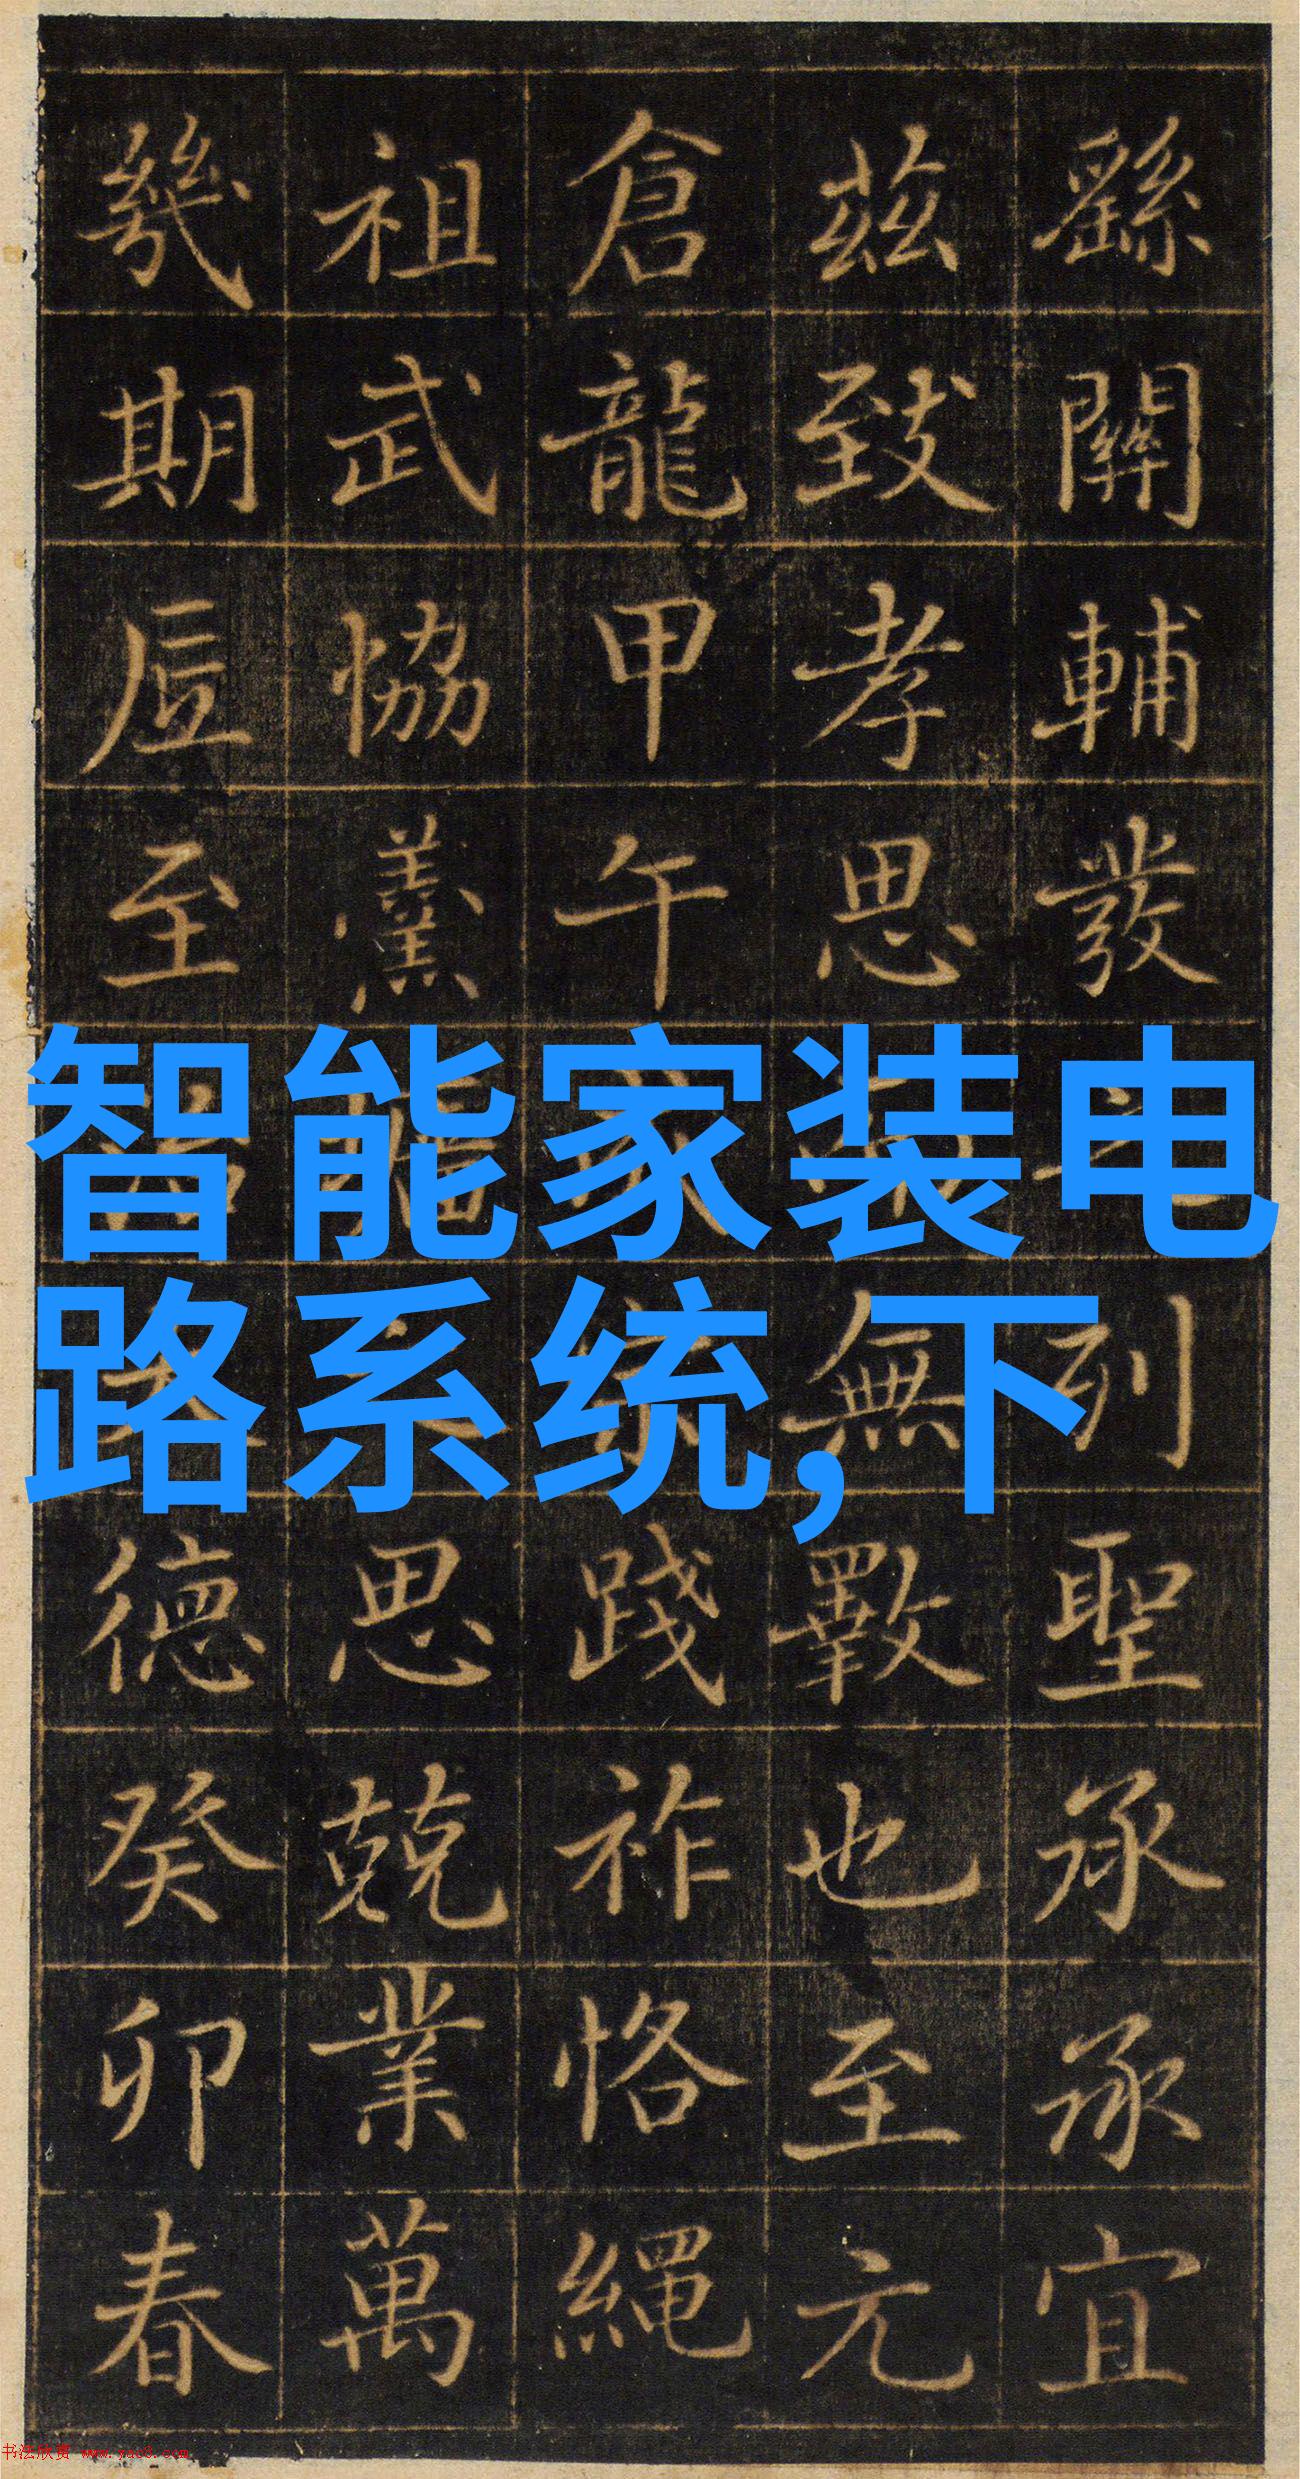 繇關輔發列聖承承宜
茲致孝思無斁也至元
倉龍甲午踐祚恪繩
祖武協羹思兢業萬
幾期底至德癸卯春
智能家装电
路系统,下
书法欣赏 www.yac8.com